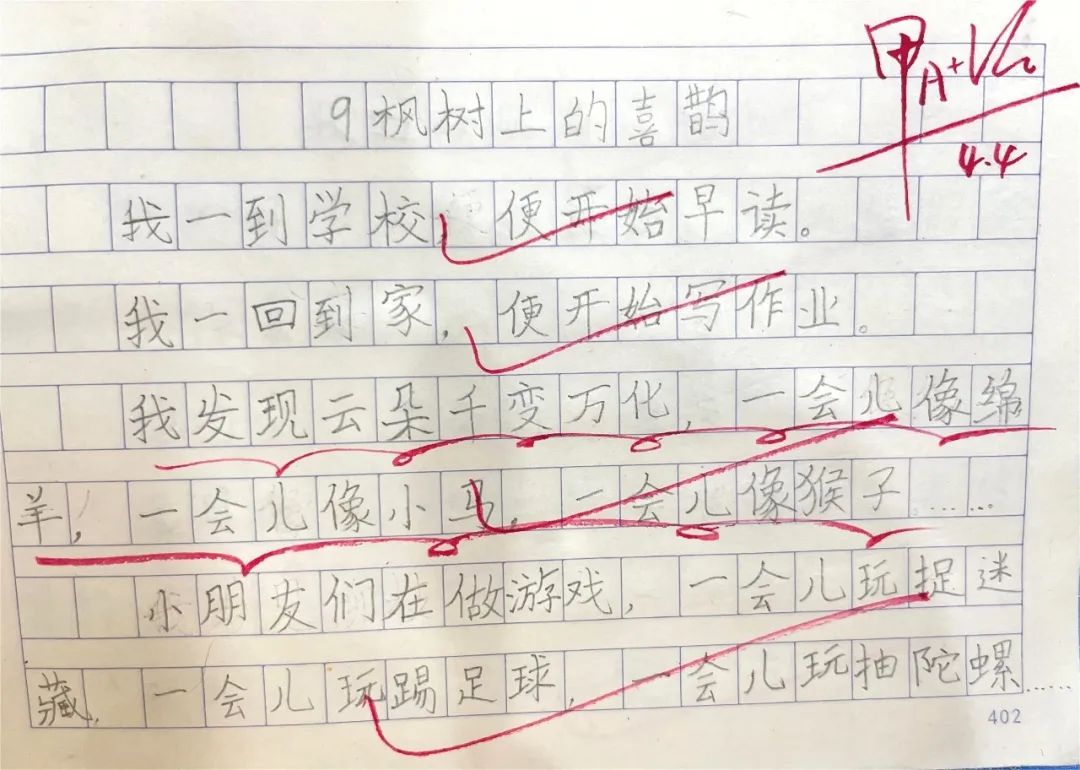 甲A+
4.4
9枫树上的喜鹊
我一到学校,便开始早读。
我一回到家,便开始写作业。
我发现云朵千变万化,一会儿像绵
羊,一会儿像小马,一会儿像猴子……
小朋友们在做游戏,一会儿玩捉迷
藏,一会儿玩踢足球,一会儿玩抽陀螺……
402